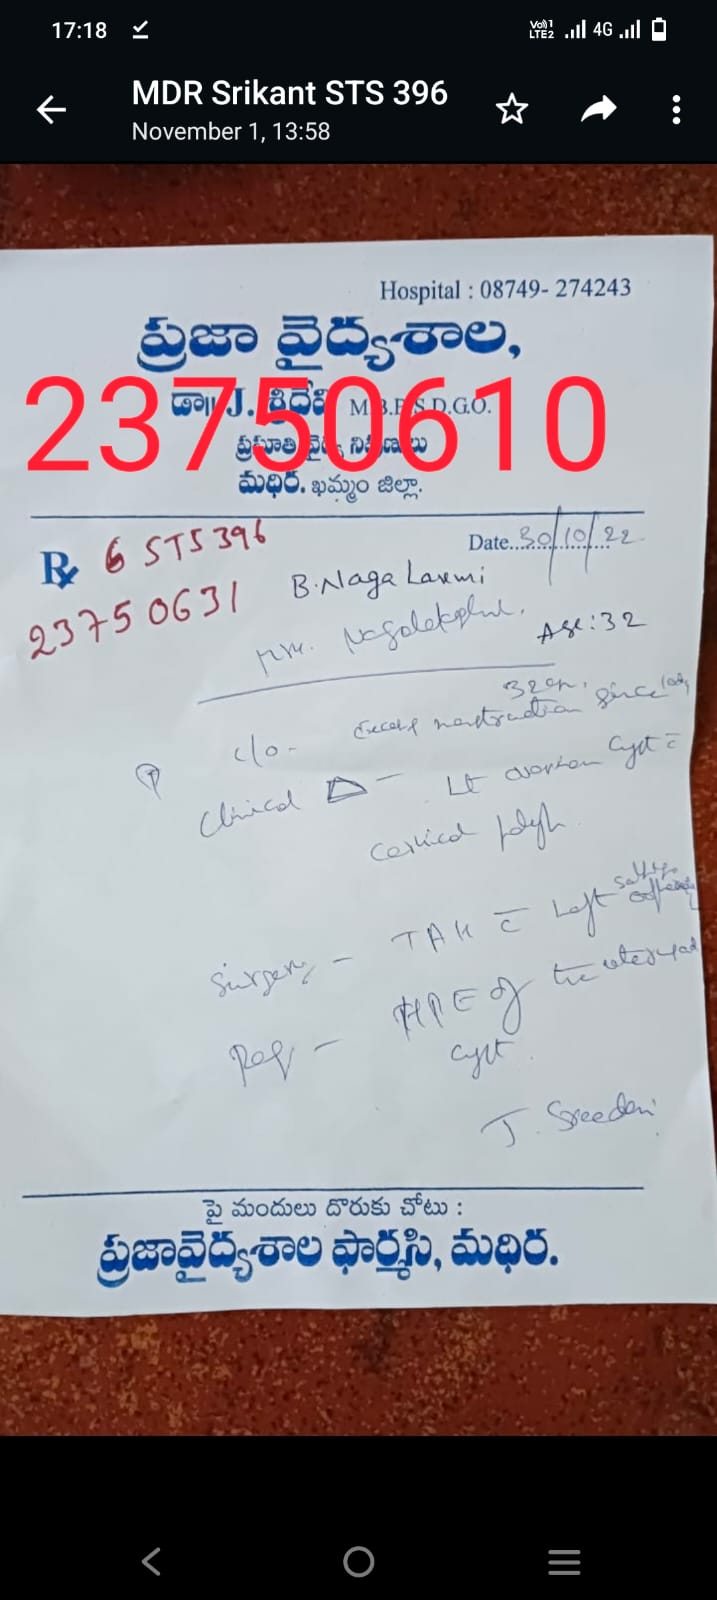 17:18
Vo))1 LTE2 4G
MDR Srikant STS 396
November 1, 13:58
Hospital : 08749- 274243
ప్రజా వైద్యశాల,
23750610
డా॥ J. శ్రీదేవి M.B.B.S.D.G.O.
ప్రసూతి వైద్య నిపుణులు
మధిర. ఖమ్మం జిల్లా.
Rx 6 STS 396
Date 30/10/22
23750631
B. Naga Laxmi
Age: 32
c/o - since
Clinical Δ - Lt ovarian Cyst c̄
Cervical polyp
Surgery - TAH c̄ Left
Req - HPE of the uterus and
cyst.
J. Sreedevi
పై మందులు దొరుకు చోటు :
ప్రజావైద్యశాల ఫార్మసి, మధిర.